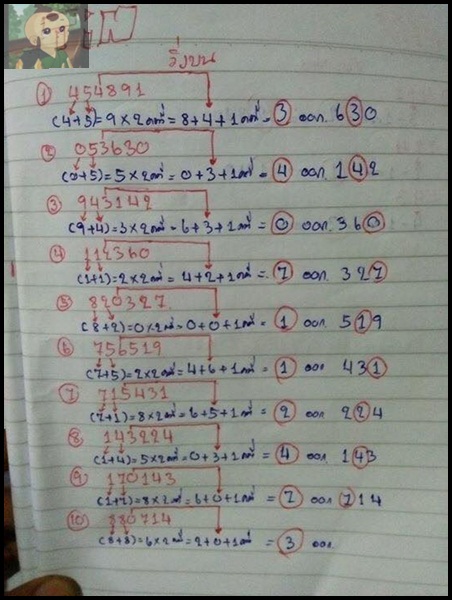 วิ่งบน
① 454891
(4+5)=9×2คที่=8+4+1คที่=③ ออก. 630
② 053630
(0+5)=5×2คที่=0+3+1คที่=④ ออก 142
③ 943142
(9+4)=3×2คที่=6+3+1คที่=⓪ ออก. 360
④ 112360
(1+1)=2×2คที่=4+2+1คที่=⑦ ออก 327
⑤ 820327
(8+2)=0×2คที่=0+0+1คที่=① ออก. 519
⑥ 756519
(7+5)=2×2คที่=4+6+1คที่=① ออก 431
⑦ 715431
(7+1)=8×2คที่=6+5+1คที่=② ออก 224
⑧ 143224
(1+4)=5×2คที่=0+3+1คที่=④ ออก 143
⑨ 170143
(1+7)=8×2คที่=6+0+1คที่=⑦ ออก 714
⑩ 880714
(8+8)=6×2คที่=2+0+1คที่=③ ออก